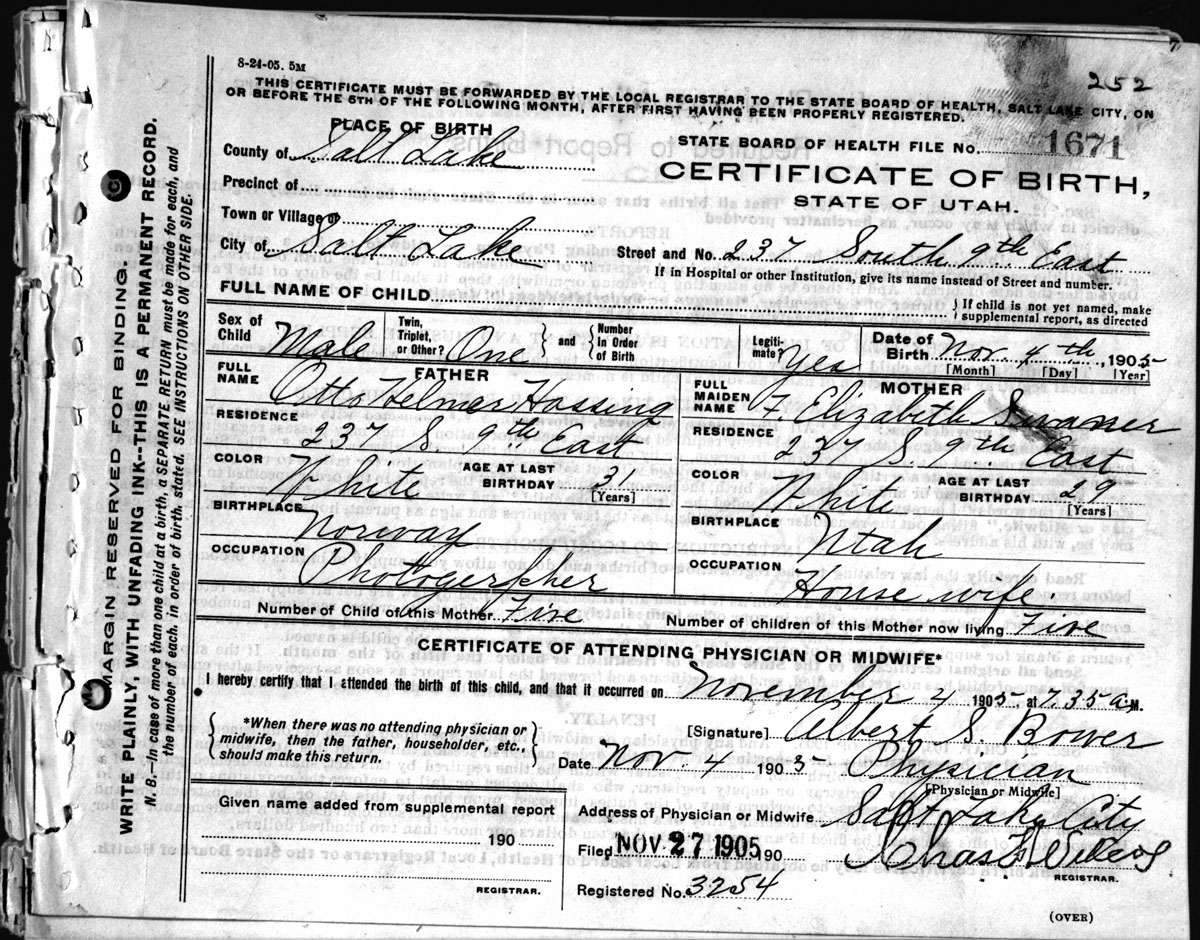 8-24-05. 5M
252
THIS CERTIFICATE MUST BE FORWARDED BY THE LOCAL REGISTRAR TO THE STATE BOARD OF HEALTH, SALT LAKE CITY, ON
OR BEFORE THE 5TH OF THE FOLLOWING MONTH, AFTER FIRST HAVING BEEN PROPERLY REGISTERED.
PLACE OF BIRTH
STATE BOARD OF HEALTH FILE NO. 1671
County of Salt Lake
CERTIFICATE OF BIRTH,
Precinct of
STATE OF UTAH.
Town or Village of
City of Salt Lake Street and No. 237 South 9th East
If in Hospital or other Institution, give its name instead of Street and number.
FULL NAME OF CHILD
{ If child is not yet named, make
supplemental report, as directed
Sex of Child Male Twin, Triplet, or Other? One } and { Number in Order of Birth Legiti-mate? Yes Date of Birth Nov. 4th, 1905
[Month] [Day] [Year]
FATHER
FULL NAME Otto Helmer Hassing
RESIDENCE
237 S. 9th East
COLOR White AGE AT LAST BIRTHDAY
[Years]
BIRTHPLACE Norway
OCCUPATION Photogerpher
MOTHER
FULL MAIDEN NAME F Elizabeth Swaner
RESIDENCE
237 S. 9th East
COLOR White AGE AT LAST BIRTHDAY 29
[Years]
BIRTHPLACE Utah
OCCUPATION House wife.
Number of Child of this Mother Five Number of children of this Mother now living Five
CERTIFICATE OF ATTENDING PHYSICIAN OR MIDWIFE*
I hereby certify that I attended the birth of this child, and that it occurred on November 4 1905, at 7.35 a.M.
{ *When there was no attending physician or
midwife, then the father, householder, etc.,
should make this return. }
[Signature] Albert S. Bower
Date Nov. 4 1905 Physician
[Physician or Midwife]
Given name added from supplemental report
190
REGISTRAR.
Address of Physician or Midwife Salt Lake City
Filed NOV 27 1905 190
REGISTRAR.
Registered No. 3254
(OVER)
MARGIN RESERVED FOR BINDING.
WRITE PLAINLY, WITH UNFADING INK--THIS IS A PERMANENT RECORD.
N. B.-In case of more than one child at a birth, a SEPARATE RETURN must be made for each, and
the number of each, in order of birth, stated. SEE INSTRUCTIONS ON OTHER SIDE.